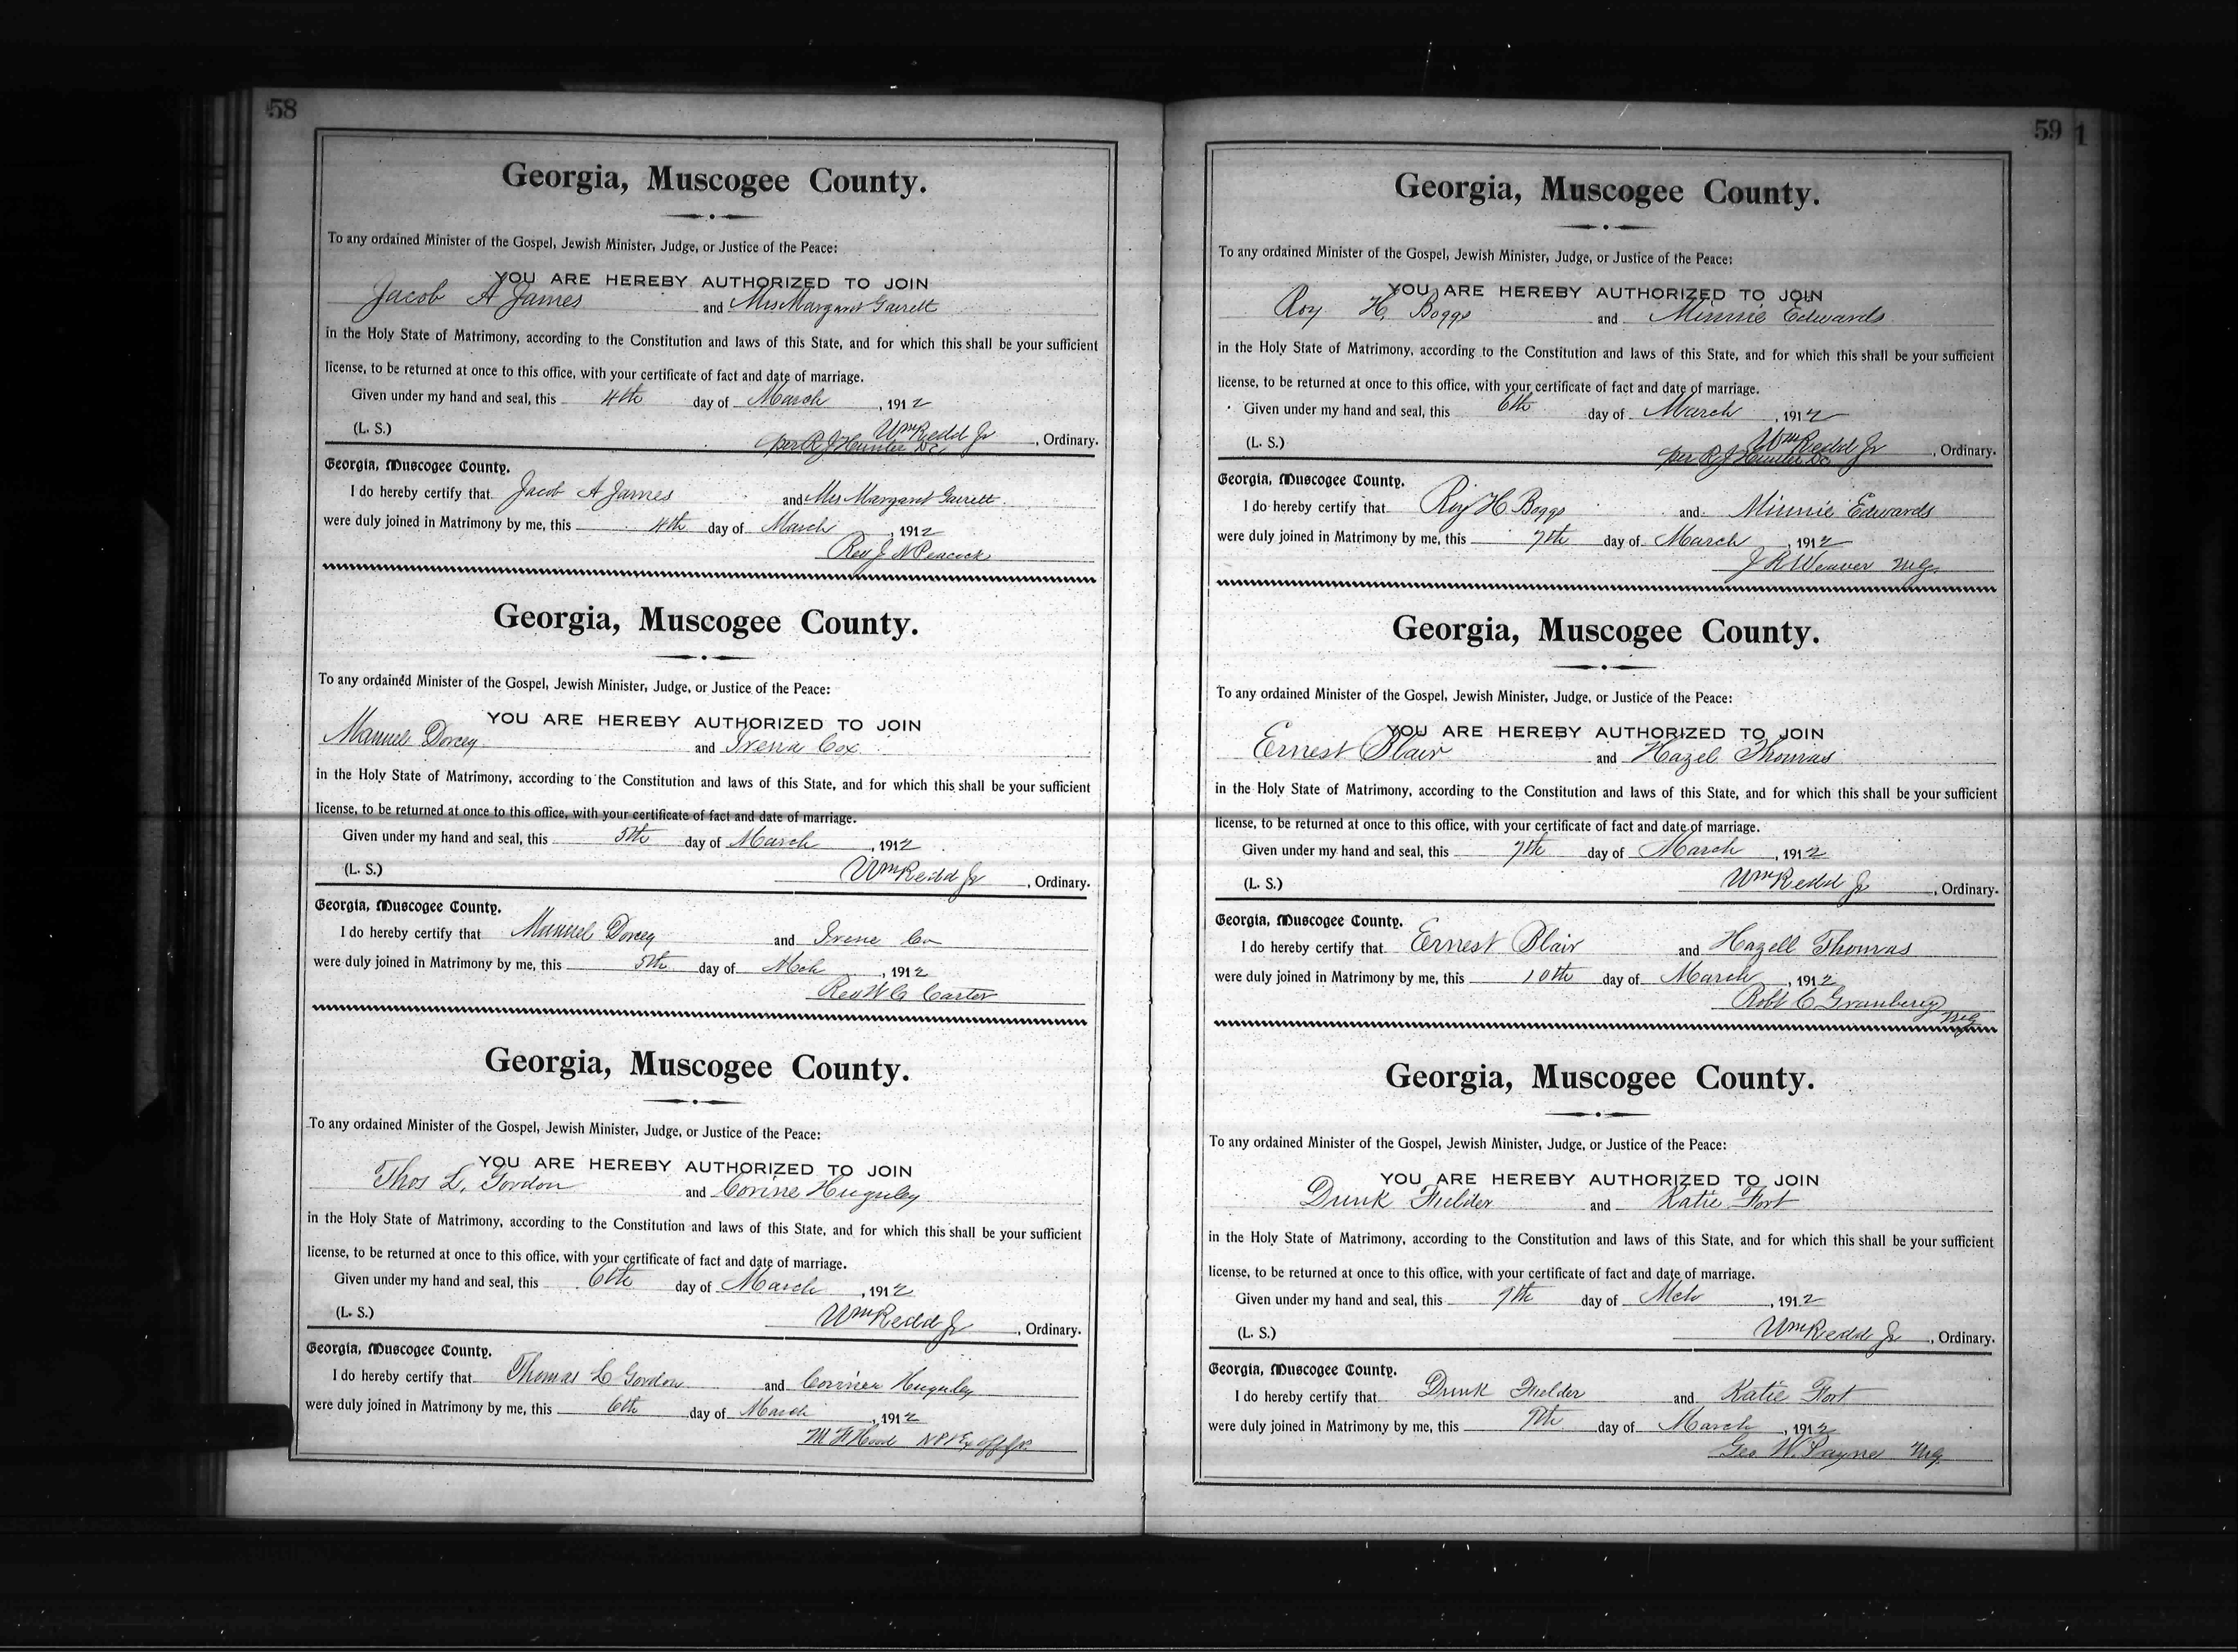 58
Georgia, Muscogee County.
To any ordained Minister of the Gospel, Jewish Minister, Judge, or Justice of the Peace:
YOU ARE HEREBY AUTHORIZED TO JOIN
Jacob A James and Mrs Margaret Garrett
in the Holy State of Matrimony, according to the Constitution and laws of this State, and for which this shall be your sufficient
license, to be returned at once to this office, with your certificate of fact and date of marriage.
Given under my hand and seal, this 4th day of March, 1912
(L. S.) Wm Redd Jr, Ordinary.
per R J Hunter DC
Georgia, Muscogee County.
I do hereby certify that Jacob A James and Mrs Margaret Garrett
were duly joined in Matrimony by me, this 4th day of March, 1912
Rev J N Peacock
Georgia, Muscogee County.
To any ordained Minister of the Gospel, Jewish Minister, Judge, or Justice of the Peace:
YOU ARE HEREBY AUTHORIZED TO JOIN
Manuel Dorcey and Irena Cox
in the Holy State of Matrimony, according to the Constitution and laws of this State, and for which this shall be your sufficient
license, to be returned at once to this office, with your certificate of fact and date of marriage.
Given under my hand and seal, this 5th day of March, 1912
(L. S.) Wm Redd Jr, Ordinary.
Georgia, Muscogee County.
I do hereby certify that Manuel Dorcey and Irene Co
were duly joined in Matrimony by me, this 5th day of Mch, 1912
Rev W G Carter
Georgia, Muscogee County.
To any ordained Minister of the Gospel, Jewish Minister, Judge, or Justice of the Peace:
YOU ARE HEREBY AUTHORIZED TO JOIN
Thos L. Gordon and Corine Huguley
in the Holy State of Matrimony, according to the Constitution and laws of this State, and for which this shall be your sufficient
license, to be returned at once to this office, with your certificate of fact and date of marriage.
Given under my hand and seal, this 6th day of March, 1912
(L. S.) Wm Redd Jr, Ordinary.
Georgia, Muscogee County.
I do hereby certify that Thomas L Gordon and Corinee Huguley
were duly joined in Matrimony by me, this 6th day of March, 1912
M H Hood N P & Ex off J P
59 1
Georgia, Muscogee County.
To any ordained Minister of the Gospel, Jewish Minister, Judge, or Justice of the Peace:
YOU ARE HEREBY AUTHORIZED TO JOIN
Roy H. Boggs and Minnie Edwards
in the Holy State of Matrimony, according to the Constitution and laws of this State, and for which this shall be your sufficient
license, to be returned at once to this office, with your certificate of fact and date of marriage.
Given under my hand and seal, this 6th day of March, 1912
(L. S.) Wm Redd Jr, Ordinary.
per R J Hunter DC
Georgia, Muscogee County.
I do hereby certify that Roy H Boggs and Minnie Edwards
were duly joined in Matrimony by me, this 7th day of March, 1912
J R Weaver M.G.
Georgia, Muscogee County.
To any ordained Minister of the Gospel, Jewish Minister, Judge, or Justice of the Peace:
YOU ARE HEREBY AUTHORIZED TO JOIN
Ernest Blair and Hazel Thomas
in the Holy State of Matrimony, according to the Constitution and laws of this State, and for which this shall be your sufficient
license, to be returned at once to this office, with your certificate of fact and date of marriage.
Given under my hand and seal, this 7th day of March, 1912
(L. S.) Wm Redd Jr, Ordinary.
Georgia, Muscogee County.
I do hereby certify that Ernest Blair and Hazell Thomas
were duly joined in Matrimony by me, this 10th day of March, 1912
Robt C Granberry
M G
Georgia, Muscogee County.
To any ordained Minister of the Gospel, Jewish Minister, Judge, or Justice of the Peace:
YOU ARE HEREBY AUTHORIZED TO JOIN
Drunk Fielder and Katie Fort
in the Holy State of Matrimony, according to the Constitution and laws of this State, and for which this shall be your sufficient
license, to be returned at once to this office, with your certificate of fact and date of marriage.
Given under my hand and seal, this 9th day of Mch, 1912
(L. S.) Wm Redd Jr, Ordinary.
Georgia, Muscogee County.
I do hereby certify that Drunk Fielder and Katie Fort
were duly joined in Matrimony by me, this 9th day of March, 1912
Geo W. Payne M.G.